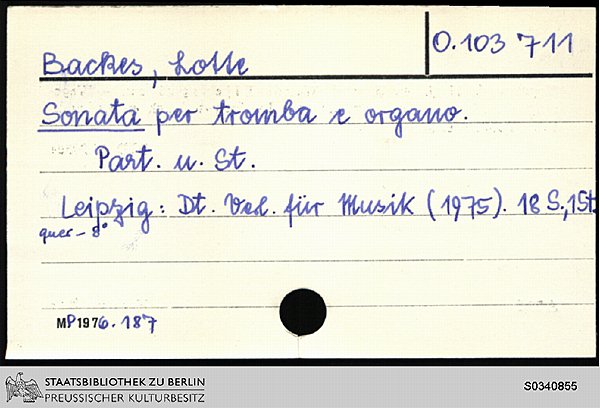 O.103 711
Backes, Lotte
Sonata per tromba e organo.
Part. u. St.
Leipzig: Dt. Verl. für Musik (1975). 18 S., 1 St.
quer-8°
MP1976.187
STAATSBIBLIOTHEK ZU BERLIN
PREUSSISCHER KULTURBESITZ
S0340855